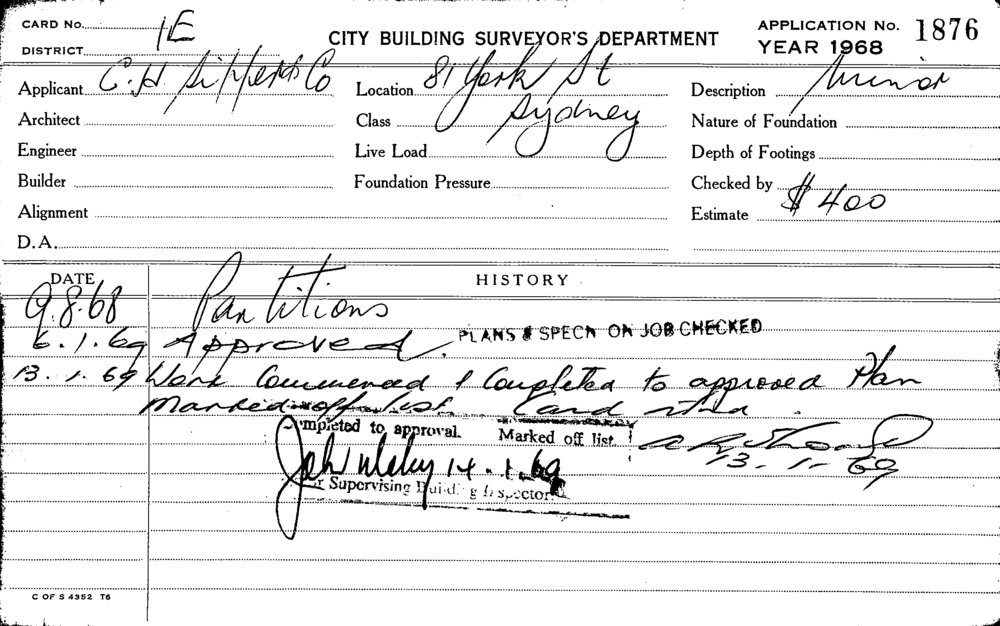 CARD No.
DISTRICT 1E
CITY BUILDING SURVEYOR'S DEPARTMENT
APPLICATION No. 1876
YEAR 1968
Applicant C. H. Co
Location 81 York St
Description Minor
Architect
Class Sydney
Nature of Foundation
Engineer
Live Load
Depth of Footings
Builder
Foundation Pressure
Checked by
Alignment
Estimate $400
D.A.
DATE
HISTORY
9.8.68 Partitions
6.1.69 Approved. PLANS & SPECN ON JOB CHECKED
13.1.69 Work Commenced & Completed to approved Plan
Marked off list. Card
Completed to approval. Marked off list.
13-1-69
14.1.69
for Supervising Building Inspector.
C OF S 4352 T6